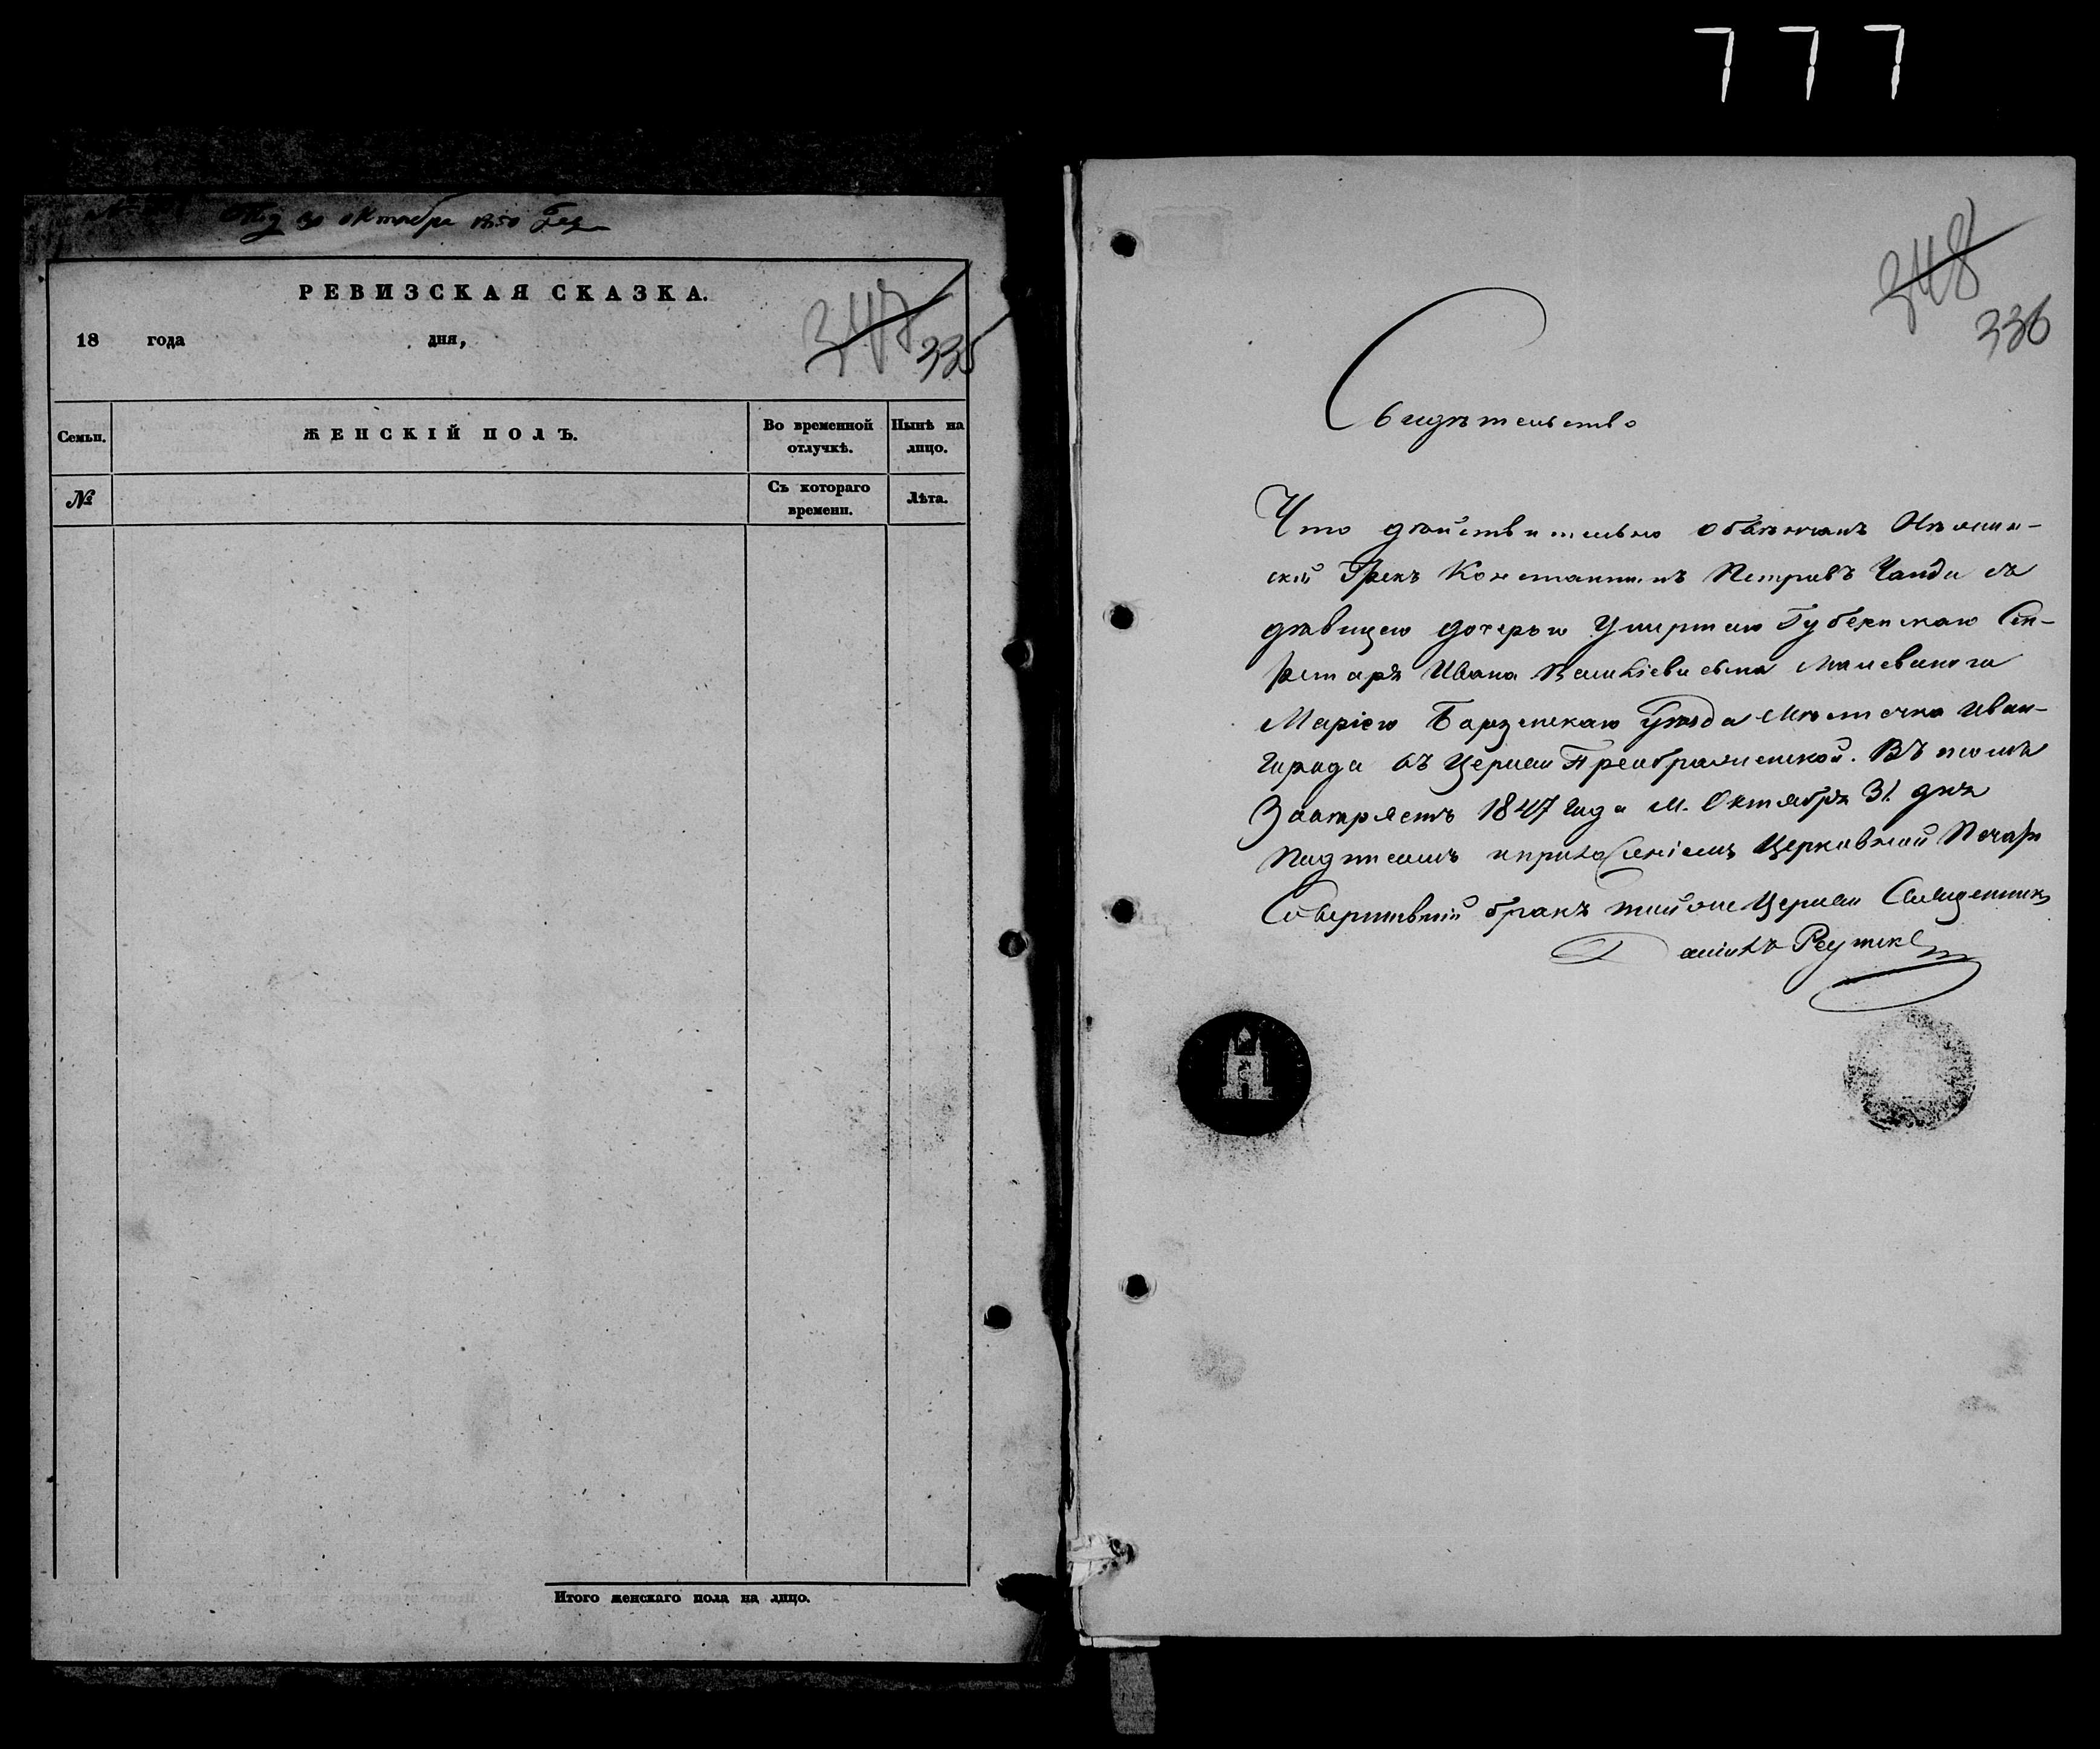 777
30 октября 1850
РЕВИЗСКАЯ СКАЗКА.
347
335
18 года дня,
Семьи.
ЖЕНСКІЙ ПОЛЪ.
Во временной отлучкѣ.
Нынѣ на лицо.
№
Съ котораго времени.
Лѣта.
Итого женскаго пола на лицо.
348
336
Свидѣтельство
Что дѣйствительно обвѣнчанъ Нѣжин-
скій Грекъ Константинъ Петровъ с
дѣвицею дочерью Умершаго Губернскаго Сек-
ретаря Ивана сына
Маріею Борзенскаго уѣзда Мѣстечка Иван-
города въ Церкви Преображенской. Въ томъ
1847 года М. Октября 31 дня
Подписомъ и приложеніемъ Церковной Печати
Совершившій бракъ Церкви Священникъ